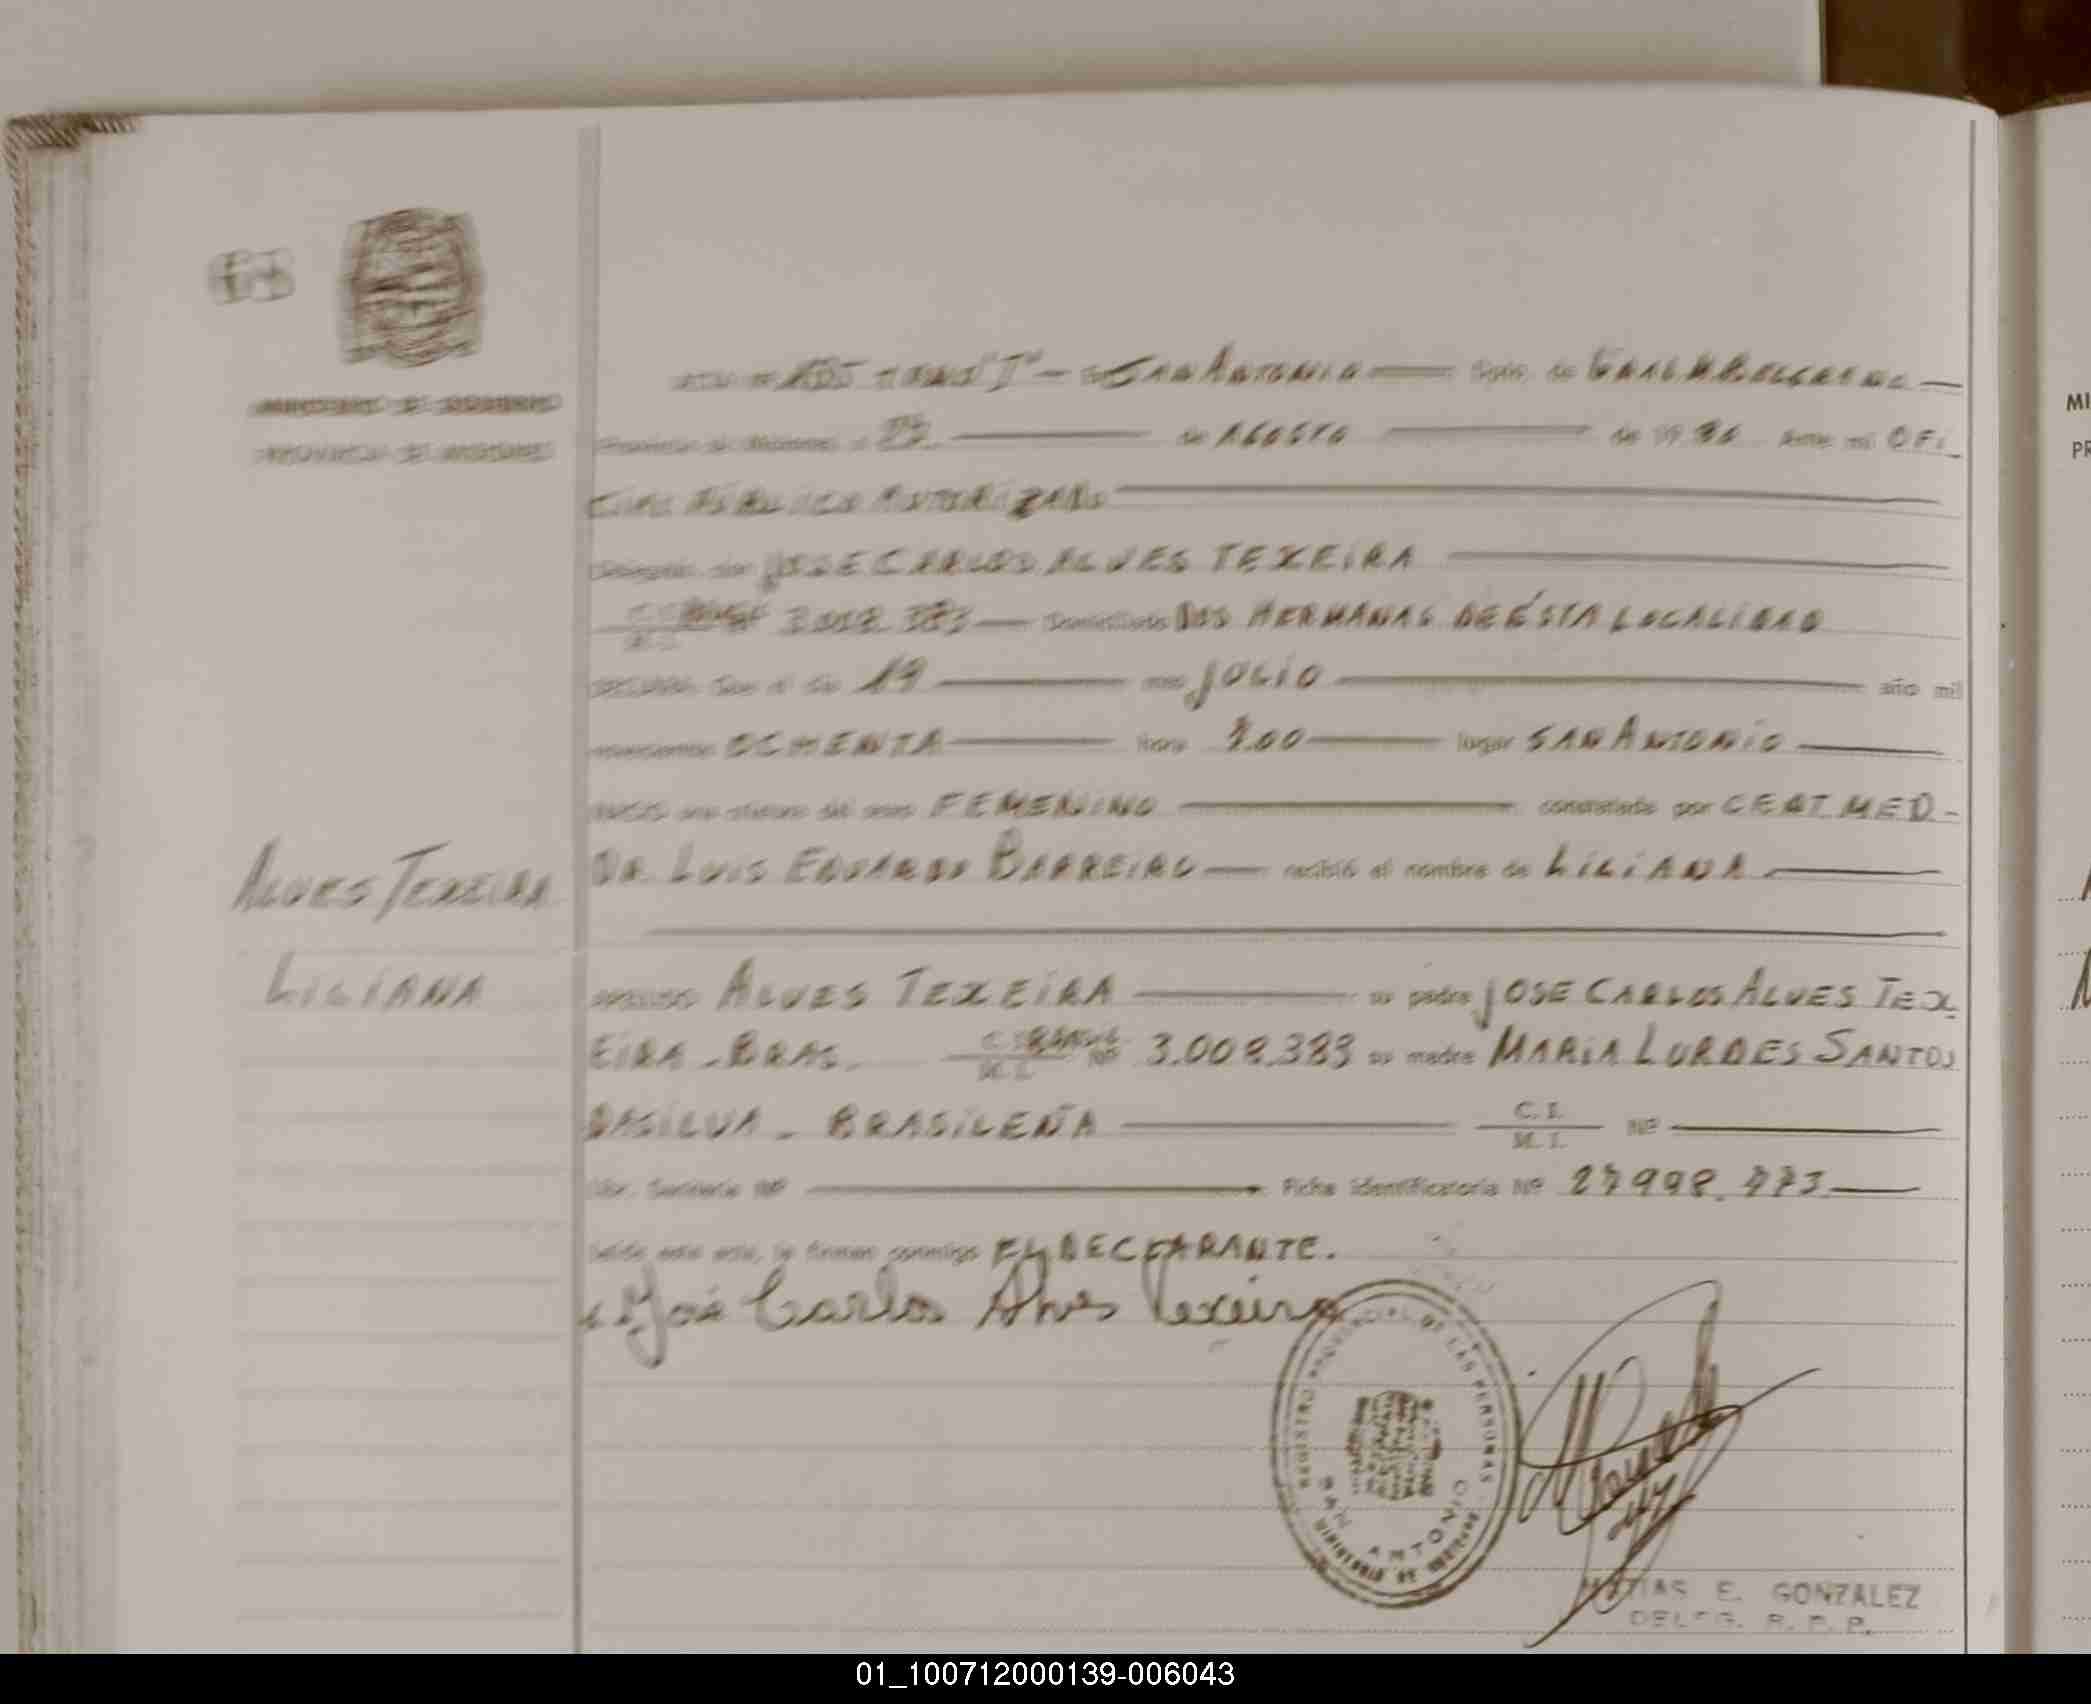 MINISTERIO DE GOBIERNO
PROVINCIA DE MISIONES
TOMO "I" - San Antonio Dpto. de Gral M Belgrano
Provincia de Misiones a de Agosto de 19 Ante mi OFI
CIAL PÚBLICO AUTORIZADO
JOSE CARLOS ALVES TEXEIRA
C.I. M.I. Domiciliado DOS HERMANAS DE ÉSTA LOCALIDAD
DECLARA: Que el día 19 mes JULIO año mil
novecientos OCHENTA hora lugar SAN ANTONIO
NACIO una criatura del sexo FEMENINO constatado por CERT MED-
DR. LUIS EDUARDO BARREIRO recibió el nombre de LILIANA
ALVES TEXEIRA
LILIANA
apellido ALVES TEXEIRA su padre JOSE CARLOS ALVES TEX
EIRA - BRAS. C.I. M.I. Nº 3.008.383 su madre MARIA LURDES SANTOS
DASILVA - BRASILEÑA C.I. M.I. Nº
Libr. Sanitaria Nº Ficha Identificatoria Nº 27998.773
Leída esta acta, la firman conmigo EL DECLARANTE.
José Carlos Alves Texeira
REGISTRO PROVINCIAL DE LAS PERSONAS
SAN ANTONIO
MATIAS E. GONZALEZ
DELEG. R. P. P.
MI
PR
01_100712000139-006043